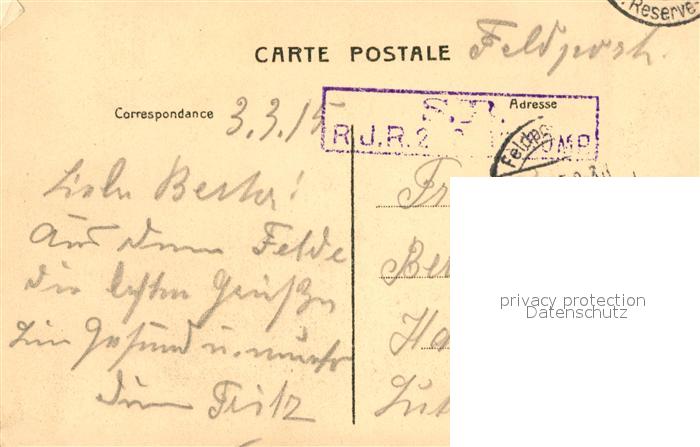 . Reserve-
CARTE POSTALE Feldpost.
Correspondance 3.3.15
Adresse
S.B.
R.J.R. 2 OMP
Feldpo
Liebe Berta!
Aus dem Felde
die besten Grüße
bin Gesund u. munter
dein Fritz
Fr
Ber
Ha
Lut
privacy protection
Datenschutz